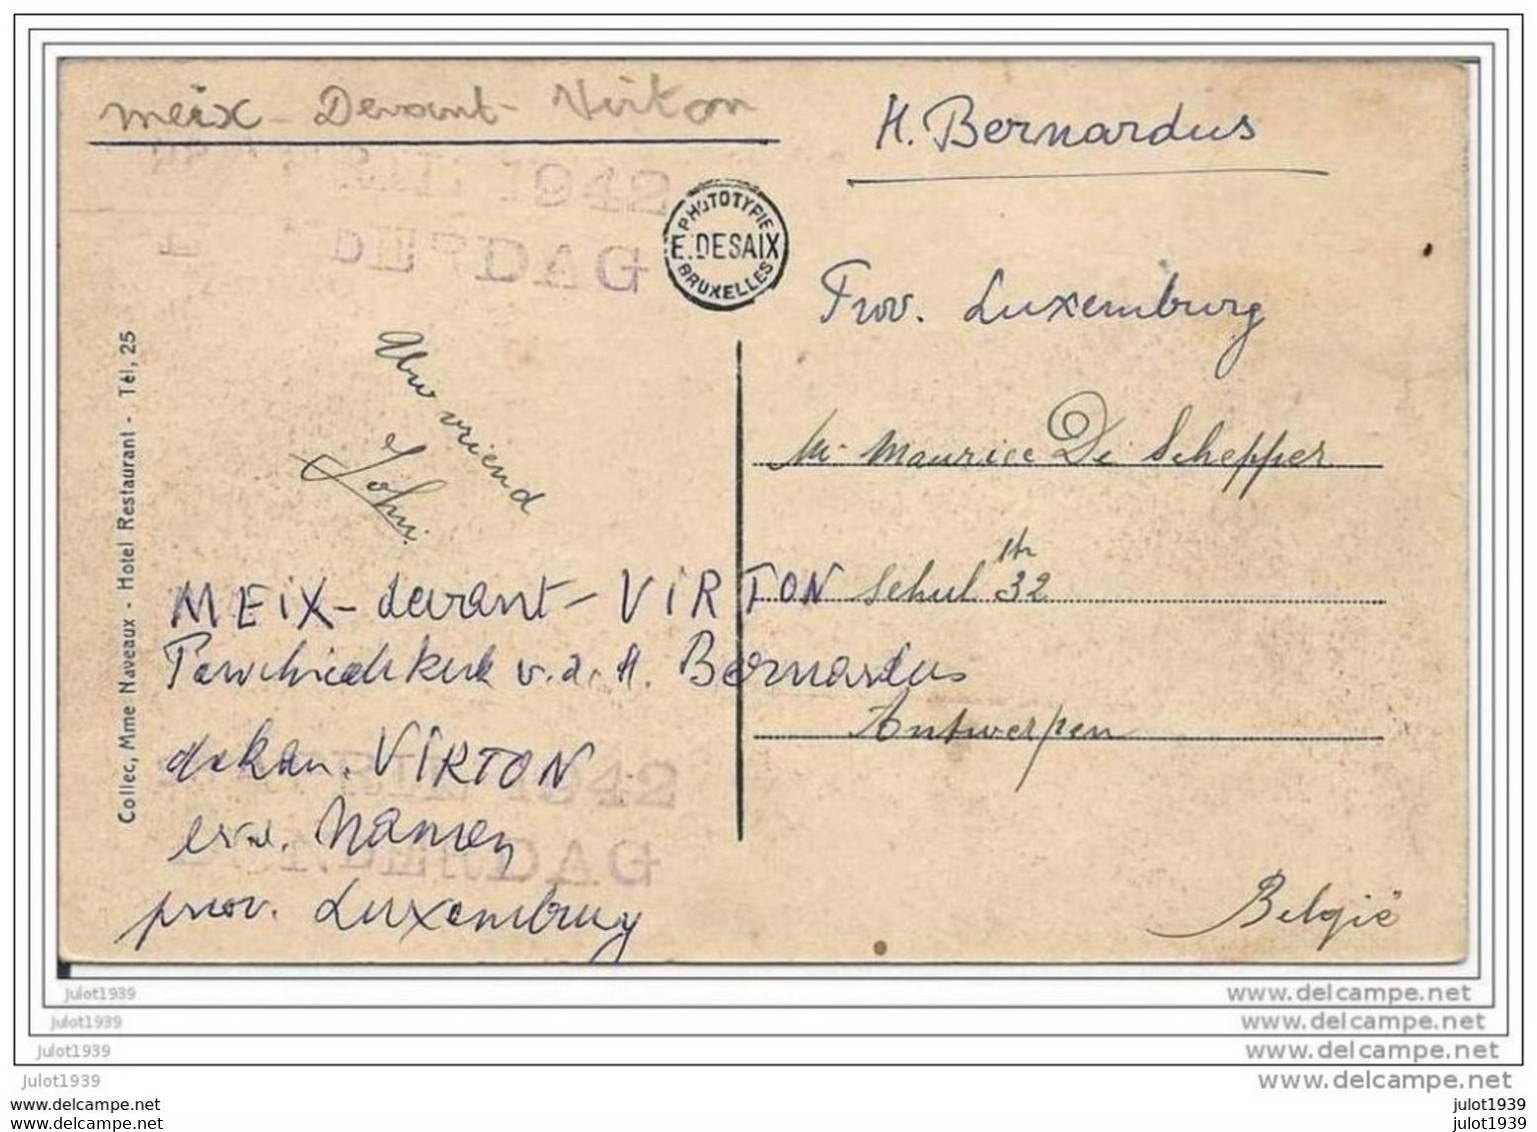 Meix - Devant - Virton
H. Bernardus
1942
DERDAG
PHOTOTYPIE
E. DESAIX
BRUXELLES
Prov. Luxemburg
Uw vriend
John.
Collec, Mme Naveaux - Hotel Restaurant - Tél, 25
Mr Maurice De Schepper
Schul str 32
Antwerpen
België
MEiX - devant - VIRTON
Parochiekerk v. d. H. Bernardus
dekan. VIRTON
Namen
prov. Luxemburg
RIL 1942
DONDERDAG
julot1939
julot1939
julot1939
julot1939
julot1939
julot1939
www.delcampe.net
www.delcampe.net
www.delcampe.net
www.delcampe.net
julot1939
julot1939